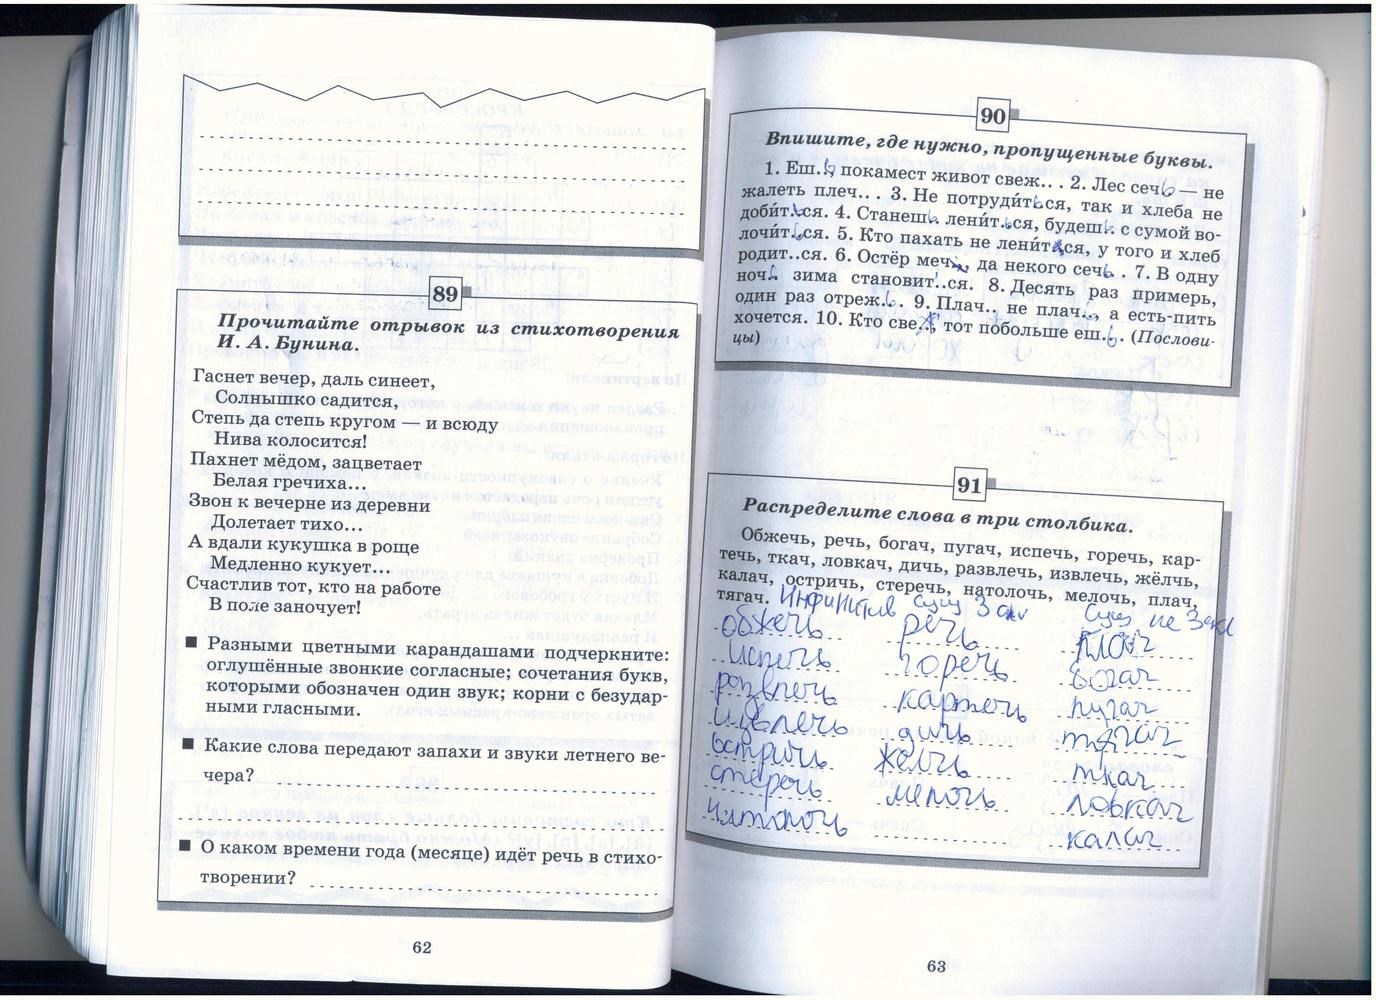 89
Прочитайте отрывок из стихотворения
И. А. Бунина.
Гаснет вечер, даль синеет,
Солнышко садится,
Степь да степь кругом — и всюду
Нива колосится!
Пахнет мёдом, зацветает
Белая гречиха...
Звон к вечерне из деревни
Долетает тихо...
А вдали кукушка в роще
Медленно кукует...
Счастлив тот, кто на работе
В поле заночует!
■ Разными цветными карандашами подчеркните:
оглушённые звонкие согласные; сочетания букв,
которыми обозначен один звук; корни с безудар-
ными гласными.
■ Какие слова передают запахи и звуки летнего ве-
чера?
■ О каком времени года (месяце) идёт речь в стихо-
творении?
62
90
Впишите, где нужно, пропущенные буквы.
1. Еш.ь покамест живот свеж... 2. Лес сечь — не
жалеть плеч... 3. Не потруди́ться, так и хлеба не
доби́т.ься. 4. Станешь лени́т.ься, будешь с сумой во-
лочи́т.ься. 5. Кто пахать не лени́т.ся, у того и хлеб
родит..ся. 6. Остёр меч, да некого сечь. 7. В одну
ночь зима становит..ся. 8. Десять раз примерь,
один раз отреж.ь. 9. Плач.. не плач.ь, а есть-пить
хочется. 10. Кто све.ж, тот побольше еш.ь. (Послови-
цы)
91
Распределите слова в три столбика.
Обжечь, речь, богач, пугач, испечь, горечь, кар-
течь, ткач, ловкач, дичь, развлечь, извлечь, жёлчь,
калач, остричь, стеречь, натолочь, мелочь, плач,
тягач. Инфинитив сущ 3 скл сущ не 3 скл
обжечь речь плач
испечь горечь богач
развлечь картечь пугач
извлечь дичь тягач
остричь жёлчь ткач
стеречь мелочь ловкач
калач
63